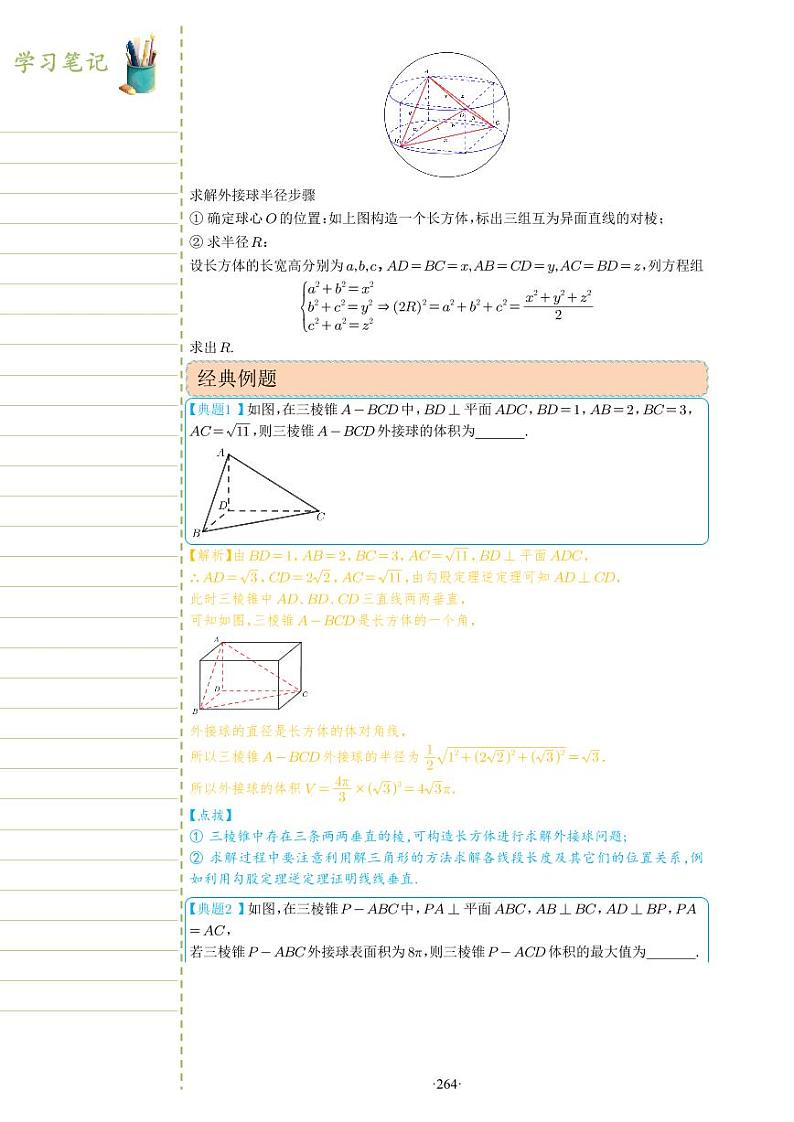 学习笔记
求解外接球半径步骤
① 确定球心 O 的位置:如上图构造一个长方体,标出三组互为异面直线的对棱;
② 求半径 R:
设长方体的长宽高分别为 a,b,c, AD=BC=x,AB=CD=y,AC=BD=z,列方程组
{a²+b²=x²
b²+c²=y² ⇒ (2R)²=a²+b²+c²= (x²+y²+z²)/2
c²+a²=z²
求出 R.
经典例题
【典题1 】如图,在三棱锥 A-BCD 中, BD ⊥ 平面 ADC, BD=1, AB=2, BC=3,
AC=√11,则三棱锥 A-BCD 外接球的体积为_______.
A
D
C
B
【解析】由 BD=1, AB=2, BC=3, AC=√11, BD ⊥ 平面 ADC,
∴ AD=√3, CD=2√2, AC=√11,由勾股定理逆定理可知 AD ⊥ CD,
此时三棱锥中 AD、BD、CD 三直线两两垂直,
可知如图,三棱锥 A-BCD 是长方体的一个角,
A
D
C
B
外接球的直径是长方体的体对角线,
所以三棱锥 A-BCD 外接球的半径为 1/2 √(1²+(2√2)²+(√3)²)=√3.
所以外接球的体积 V= 4π/3 ×(√3)³=4√3π.
【点拨】
① 三棱锥中存在三条两两垂直的棱,可构造长方体进行求解外接球问题;
② 求解过程中要注意利用解三角形的方法求解各线段长度及其它们的位置关系,例
如利用勾股定理逆定理证明线线垂直.
【典题2 】如图,在三棱锥 P-ABC 中, PA ⊥ 平面 ABC, AB ⊥ BC, AD ⊥ BP, PA
=AC,
若三棱锥 P-ABC 外接球表面积为 8π,则三棱锥 P-ACD 体积的最大值为_______.
·264·